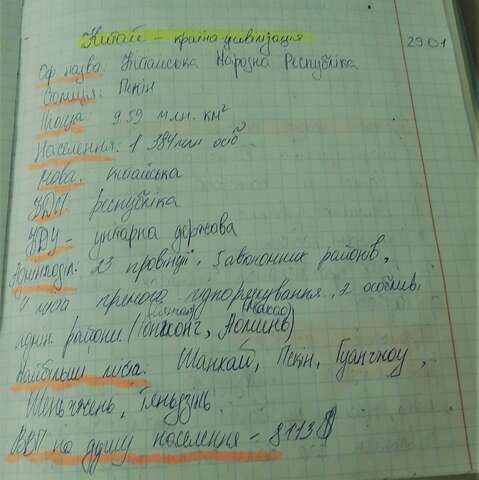 Китай – країна-цивілізація
29.01
Оф. назва. Китайська Народна Республіка
Столиця: Пекін
Площа: 9.59 млн. км²
Населення: 1 384 млн осіб
Мова. китайська
ФДП. республіка
ФДУ – унітарна держава
Адмінподіл: 23 провінції, 5 автономних районів,
4 міста прямого підпорядкування, 2 особливі
адмін. райони (Гонконг, Аоминь)
(Макао)
Найбільші міста. Шанхай, Пекін, Гуанчжоу,
Шеньчжень, Тяньцзінь.
ВВП на душу населення – 8113 $